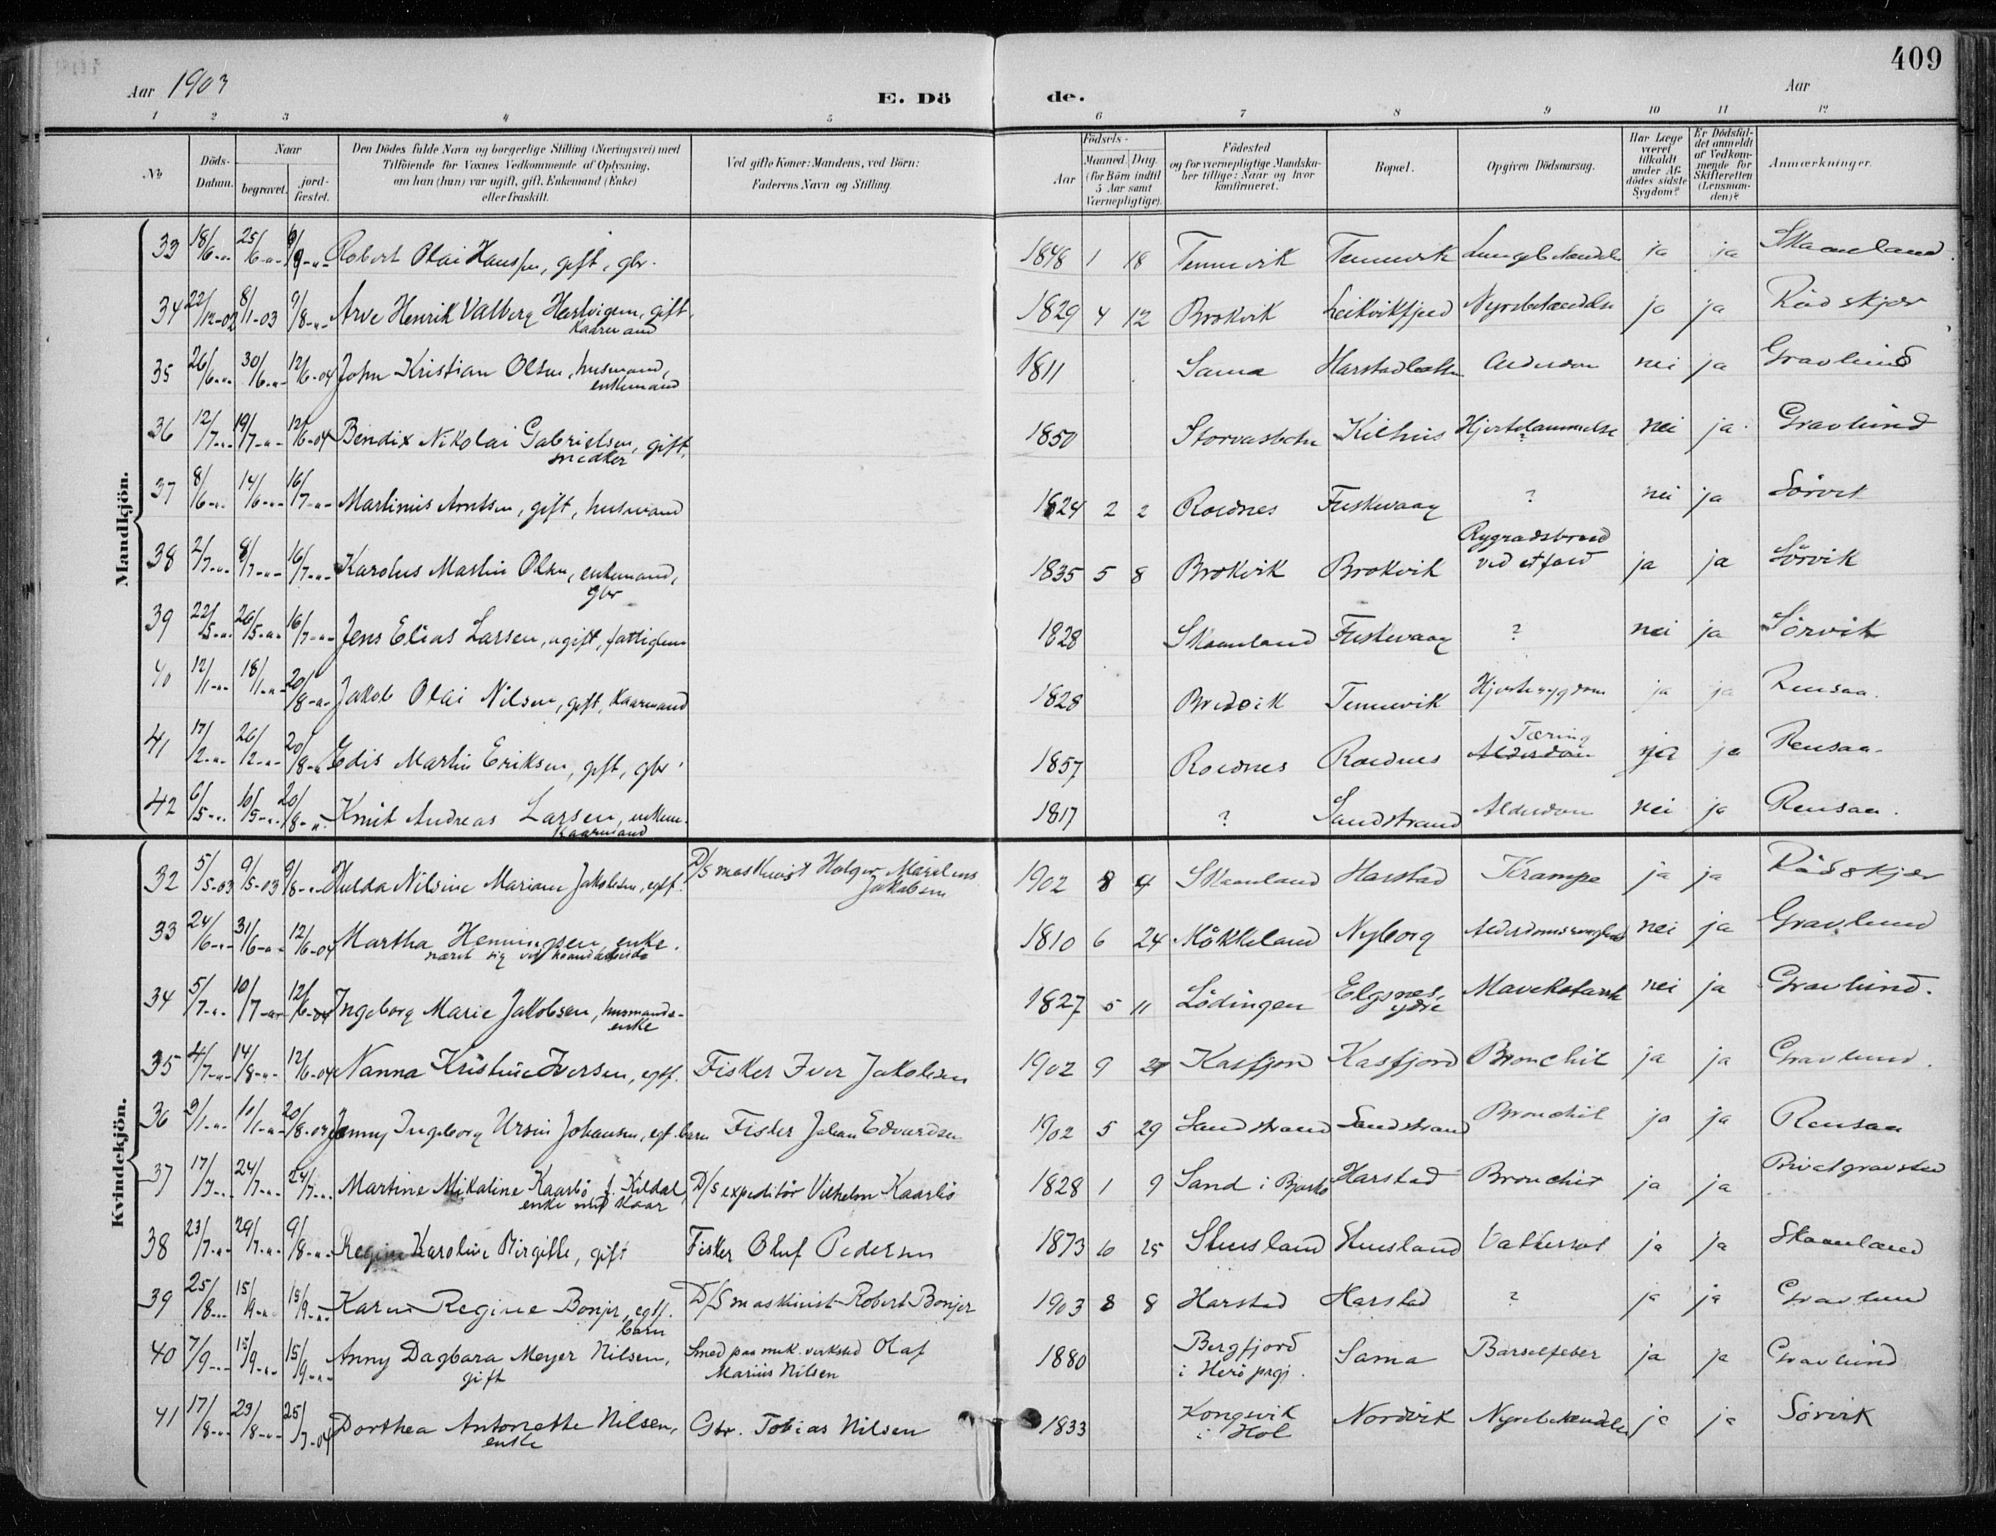 409
Aar 1903
E. Dö
de.
Aar
1 2 3 4 5 6 7 8 9 10 11 12
No
Döds-Datum.
Naar
begravet.
jord-fæstet.
Den Dödes fulde Navn og borgerlige Stilling (Næringsvei) med
Tilföiende for Voxnes Vedkommende af Oplysning,
om han (hun) var ugift, gift, Enkemand (Enke)
eller fraskilt.
Ved gifte Koner: Mandens, ved Börn:
Faderens Navn og Stilling.
Födsels-
Aar
Maaned Dag
(for Börn indtil
5 Aar samt
Værnepligtige).
Födested
og for værnepligtige Mandska-
ber tillige: Naar og hvor
konfirmeret.
Bopæl.
Opgiven Dödsaarsag.
Har Læge
været
tilkaldt
under Af-
dödes sidste
Sygdom?
Er Dödsfal-
det anmeldt
af Vedkom-
mende for
Skifteretten
(Lensman-
den)?
Anmærkninger.
Mandkjön.
33 18/6 25/6 Robert Olai Hansen, gift, gbr. 1848 1 18 Tennevik Tennevik Lungebetændelse ja ja Skaanland
34 22/12-02 8/1-03 9/8 Arve Henrik Valberg Hartvigsen, gift,
kaarmand 1829 4 12 Brokvik Nyrebetændelse ja ja Rödskjær
35 26/6 30/6 12/6-04 John Kristian Olsen, husmand,
enkemand 1811 Sama Harstadbotn Alderdom nei ja Gravlund
36 12/7 19/7 12/6-04 Bendix Nikolai Gabrielsen, gift,
snedker 1850 Storvasbotn Kilhus Hjertelammelse ? nei ja Gravlund
37 8/6 14/6 16/7 Martinus Arntsen, gift, husmand 1824 2 2 Roldnes Fuskevaag ? nei ja Sörvik
38 2/7 8/7 16/7 Karolus Martin Olsen, enkemand,
gbr 1835 5 8 Brokvik Brokvik Rygradsbrud
ved et fald ja ja Sörvik
39 22/5 26/5 16/7 Jens Elias Larsen, ugift, fattiglem 1828 Skaanland Fuskevaag ? nei ja Sörvik
40 12/1 18/1 20/8 Jakob Olai Nilsen, gift, kaarmand 1828 Bredvik Tennevik Hjertesygdom ja ja Rensaa.
41 17/2 26/2 20/8 Edis Martin Eriksen, gift, gbr 1857 Roldnes Roldnes Tæring
Alderdom ja ja Rensaa.
42 6/5 10/5 20/8 Knut Andreas Larsen, enkem.
kaarmand 1817 ? Sandstrand Alderdom nei ja Rensaa.
Kvindekjön.
32 5/5-03 9/5-03 9/8 Hulda Nilsine Mariane Jakobsen, egtf. D/S maskinist Holger Marelius
Jakobsen 1902 8 4 Skaanland Harstad Krampe ja ja Rödskjær
33 24/6 31/6 12/6-04 Martha Henningsen, enke.
næret sig ved haandarbeide 1810 6 24 Mökkeland Nyborg nei ja Gravlund
34 5/7 10/7 12/6-04 Ingeborg Marie Jakobsen, husmands-
enke 1827 5 11 Lödingen Elgsnes,
ydre nei ja Gravlund.
35 4/7 14/8 12/6-04 Nanna Kristine Iversen, egtf. Fisker Iver Jakobsen 1902 9 Kasfjord Kasfjord Bronchit ja ja Gravlund.
36 9/1 10/1 20/8-04 Jenny Ingeborg Ursin Johansen, egt. barn Fisker Johan Edvardsen 1902 5 29 Sandstrand Sandstrand Bronchit ja ja Rensaa
37 17/7 24/7 24/7 Martine Mikaline Kaarbö f. Kildal,
enke med kaar D/S expeditör Vilhelm Kaarbö 1828 1 9 Sand i Bjarkö Harstad Bronchit ja ja Privatgravsted
38 23/7 29/7 9/8 Regine Karoline Birgitte, gift Fisker Oluf Pedersen 1873 10 25 Stunsland Stunsland Vattersot ja ja Skaanland
39 25/8 15/9 15/9 Karen Regine Bonjer, egtf.
barn D/S maskinist Robert Bonjer 1903 8 8 Harstad Harstad ? ja ja Gravlund
40 7/9 15/9 15/9 Anny Dagbara Meyer Nilsen,
gift Smed paa mek. verksted Olaf
Marius Nilsen 1880 Bergfjord
i Herö prgj. Sama Barselfeber ja ja Gravlund
41 17/8 23/8 25/7-04 Dorthea Antonette Nilsen,
enke Gbr. Tobias Nilsen 1833 Kongsvik
i Hol Nordvik Nyrebetændelse ja ja Sörvik